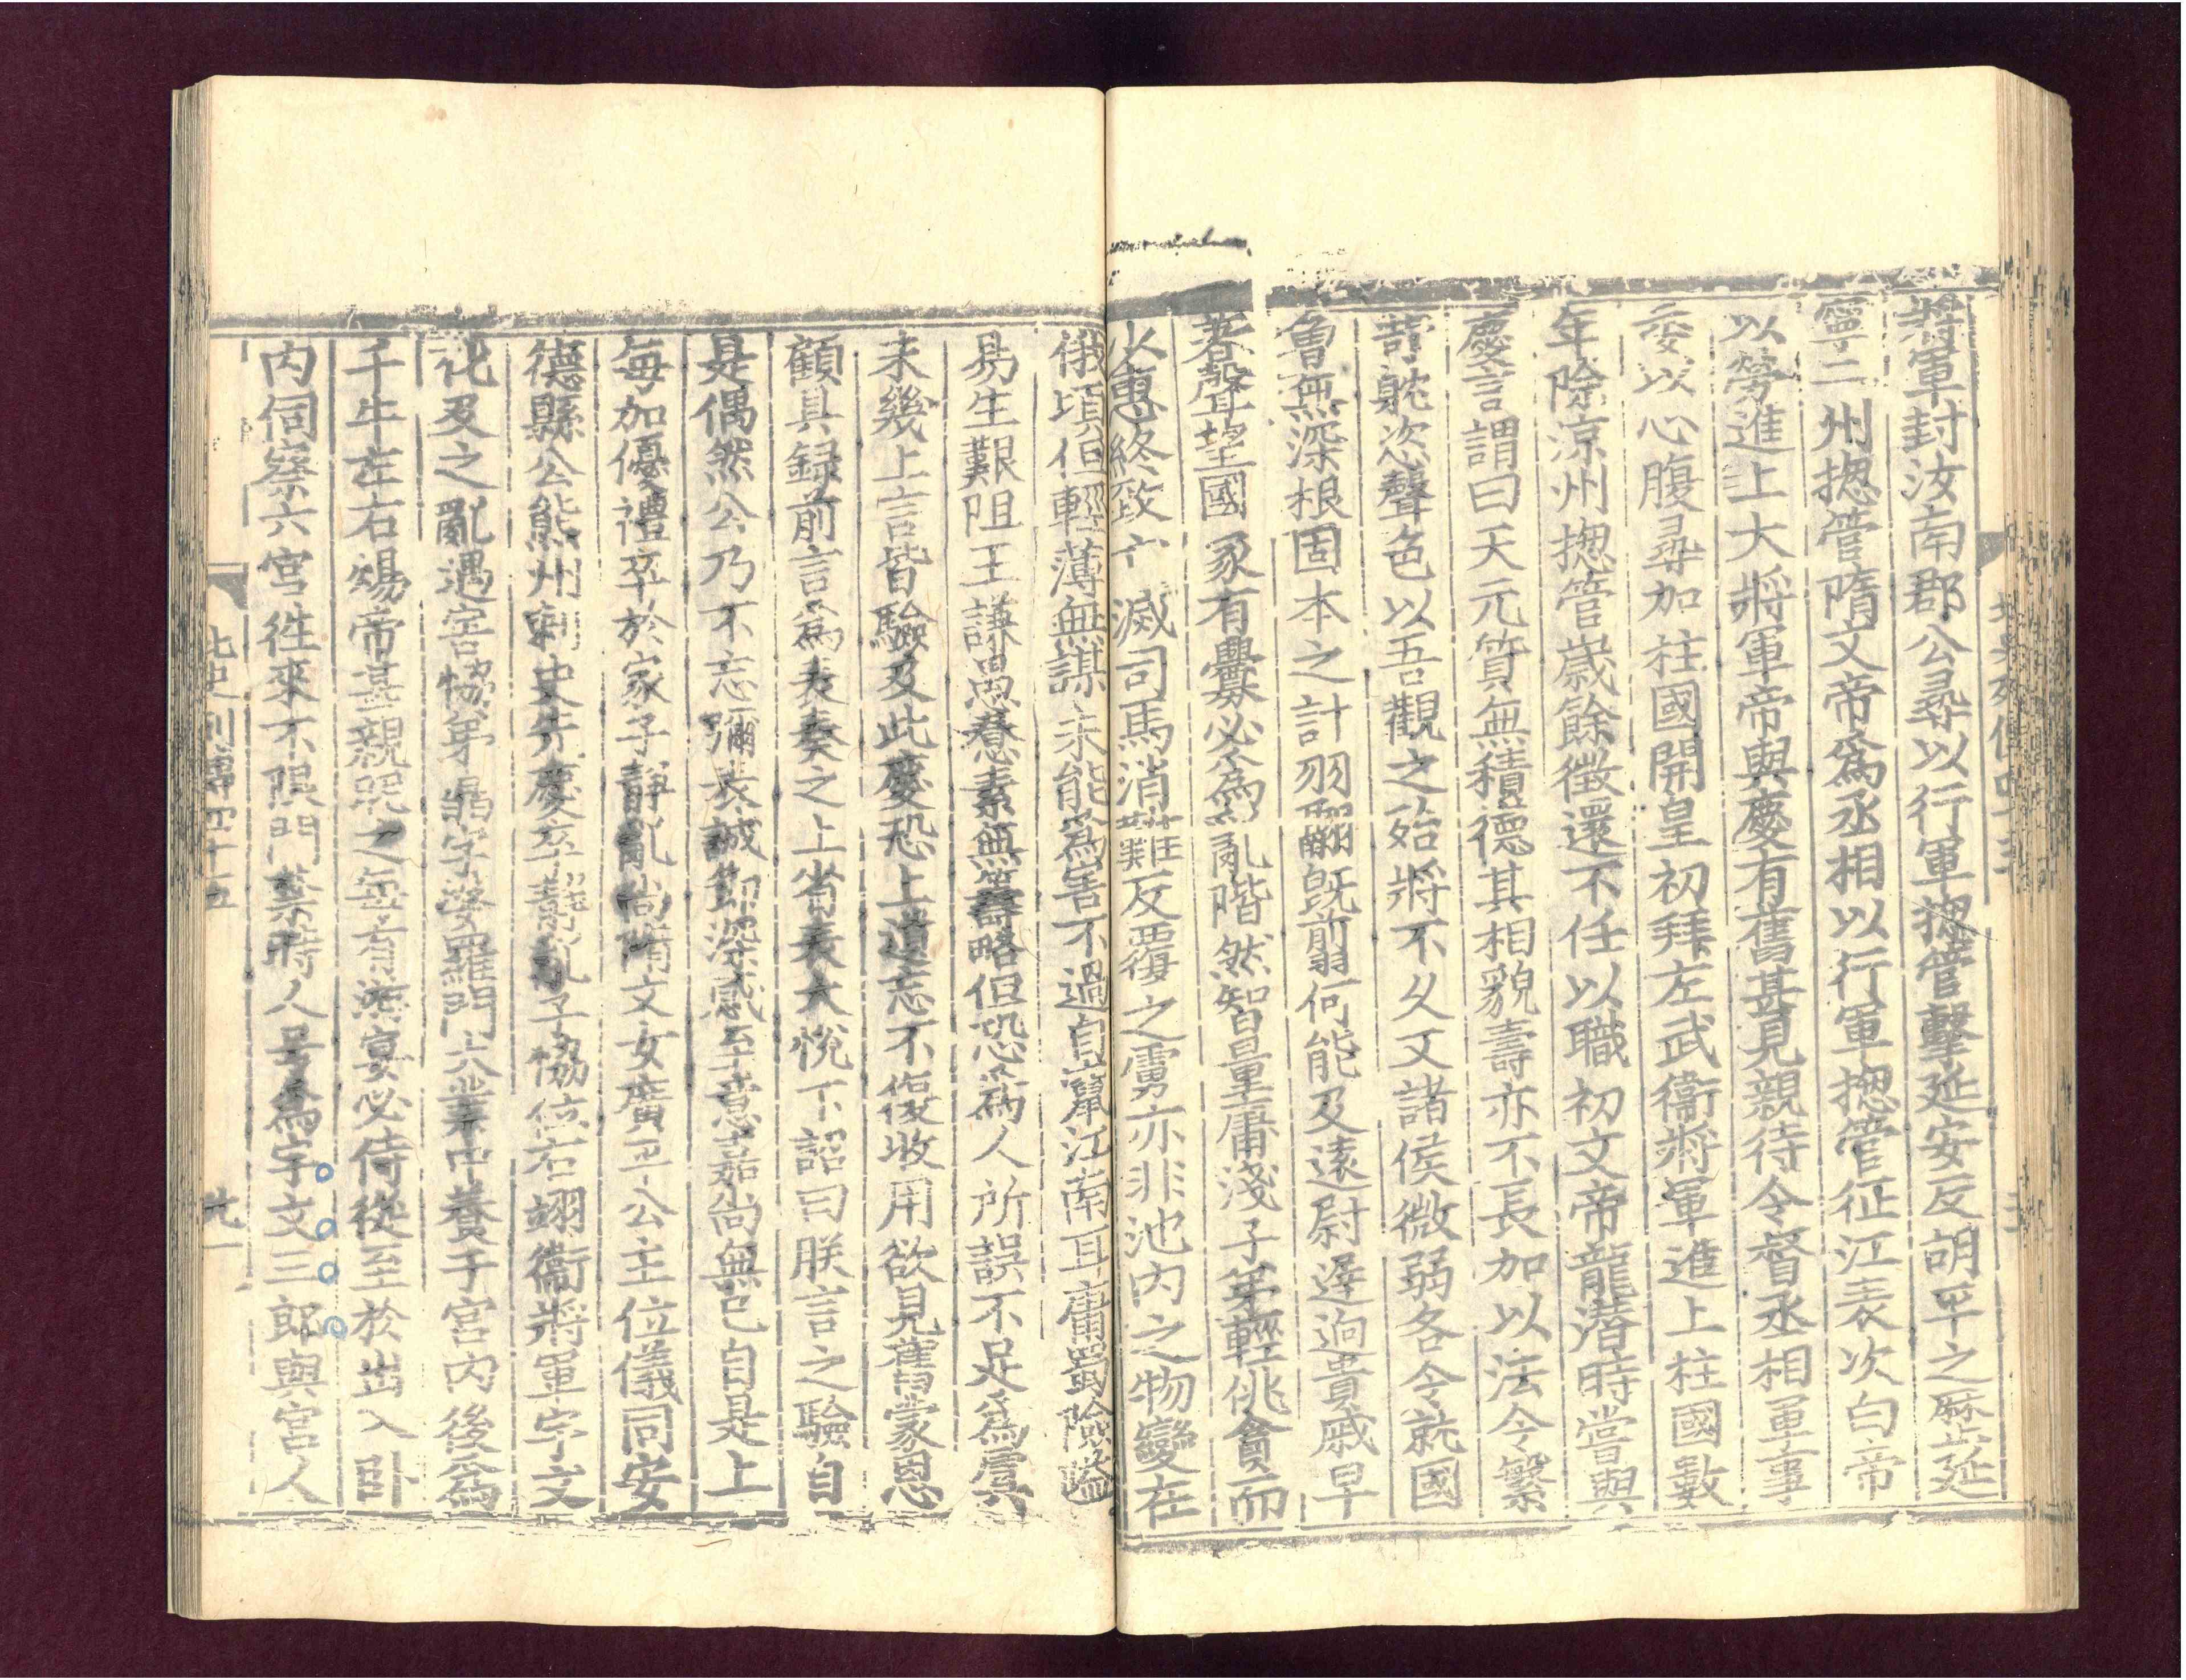 將軍封汝南郡公尋以行軍摠管擊延安反胡平之歷延
寧二州摠管隋文帝爲丞相以行軍摠管征江表次白帝
以勞進上大將軍帝與慶有舊甚見親待令督丞相軍事
委以心腹尋加柱國開皇初拜左武衞將軍進上柱國數
年除凉州摠管歲餘徵還不任以職初文帝龍潛時嘗與
慶言謂曰天元質無積德其相貌壽亦不長加以法令繁
苛躭恣聲色以吾觀之殆將不久又諸侯微弱各令就國
曾無深根固本之計羽翮旣翦何能及遠尉遲迥貴戚早
著聲望國家有釁必爲亂階然智量庸淺子弟輕佻貪而
少惠終致亡滅司馬消難反覆之虜亦非池内之物變在
俄頃但輕薄無謀未能爲害不過自竄江南耳庸蜀險隘
易生艱阻王謙愚憃素無籌略但恐爲人所誤不足爲虞
未幾上言皆驗及此慶恐上遺忘不復收用欲見舊蒙恩
顧具録前言爲表奏之上省表大悅下詔曰朕言之驗自
是偶然公乃不忘彌表誠節深感至意嘉尚無已自是上
每加優禮卒於家子靜亂尚隋文女廣平公主位儀同安
德縣公熊州刺史先慶卒靜亂子協位右翊衞將軍宇文
化及之亂遇害協弟皛字婆羅門大業中養于宮内後爲
千牛左右煬帝甚親昵之每有游宴必侍從至於出入卧
内伺察六宮徃來不限門禁時人号爲宇文三郎與宮人
北史列傳四十五